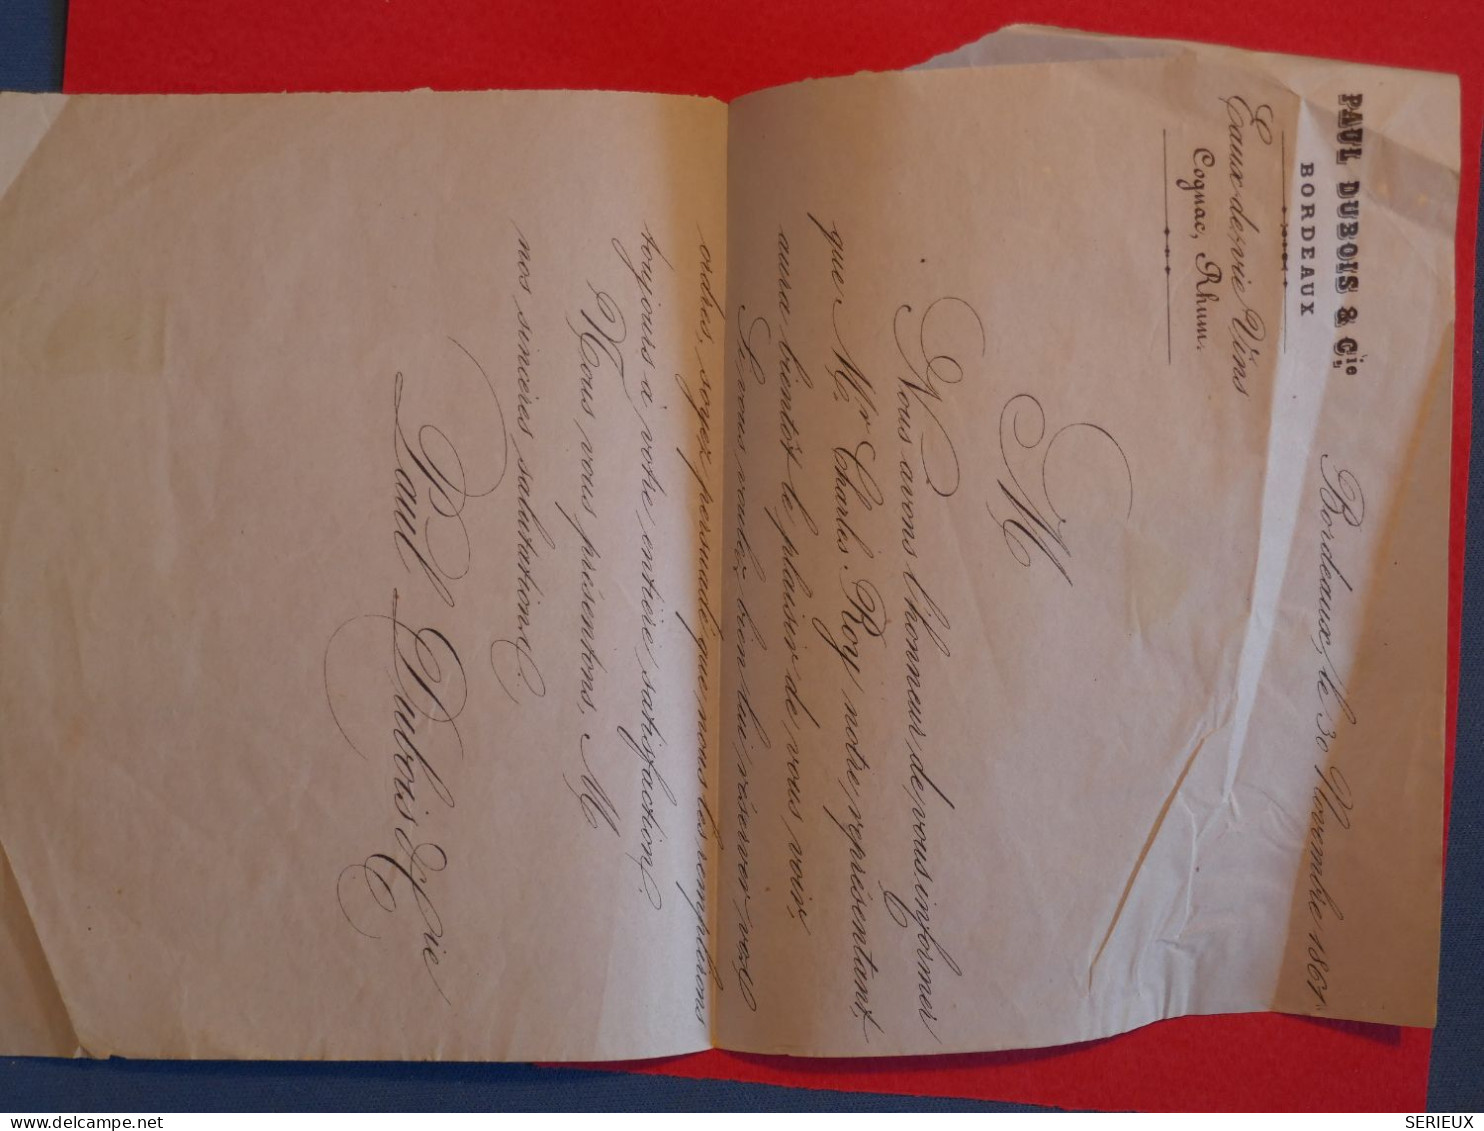 PAUL DUBOIS & Cie,
BORDEAUX
Eaux-de-vie Vins
Cognac, Rhum.
Bordeaux, le 30 Novembre 1861
M
Nous avons l'honneur de vous informer
que Mr. Charles Roy notre représentant,
aura bientôt le plaisir de vous voir.
Si vous voulez bien lui réserver vos
ordres, soyez persuadé que nous les remplirons
toujours à votre entière satisfaction.
Nous vous présentons, M
nos sincères salutations.
Paul Dubois & Cie
delcampe.net
SERIEUX